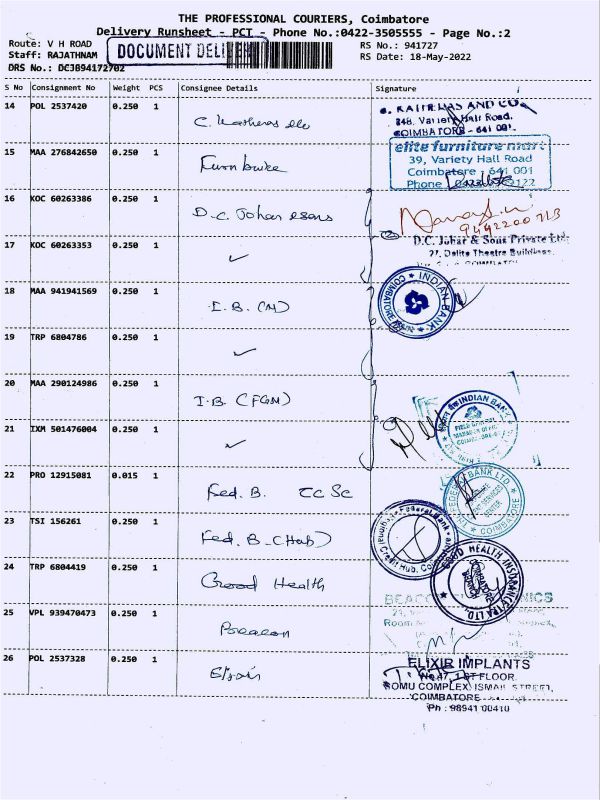 THE PROFESSIONAL COURIERS, Coimbatore
Delivery Runsheet - PCT - Phone No.:0422-3505555 - Page No.:2
Route: V H ROAD
Staff: RAJATHNAM
DRS No.: DCJ894172702
DOCUMENT
RS No.: 941727
RS Date: 18-May-2022
S No Consignment No Weight PCS Consignee Details Signature
14 POL 2537420 0.250 1
AND CO.
848, Variety Hall Road.
COIMBATORE - 641 001.
15 MAA 276842650 0.250 1
elite furniture mart
39, Variety Hall Road
Coimbatore - 641 001
Phone
16 KOC 60263386 0.250 1 D.C. Johar & sons
17 KOC 60263353 0.250 1 ✓
D.C. Johar & Sons Private Ltd.
77, Delite Theatre Buildings.
18 MAA 941941569 0.250 1 I.B. (M)
INDIAN BANK
19 TRP 6804786 0.250 1 ✓
20 MAA 290124986 0.250 1 I.B (FGM)
INDIAN BANK
FIELD GENERAL
21 IXM 501476004 0.250 1 ✓
22 PRO 12915081 0.015 1 Fed. B.
FEDERAL BANK LTD
COIMBATORE
23 TSI 156261 0.250 1 Fed. B. (Hub)
Federal Bank
Credit Hub,
24 TRP 6804419 0.250 1 Good Health
GOOD HEALTH INSURANCE TPA LTD.
25 VPL 939470473 0.250 1 Beacon
26 POL 2537328 0.250 1 Elixir
ELIXIR IMPLANTS
No.47, 1 ST FLOOR.
SOMU COMPLEX, ISMAIL STREET,
COIMBATORE
Ph : 98941 00410